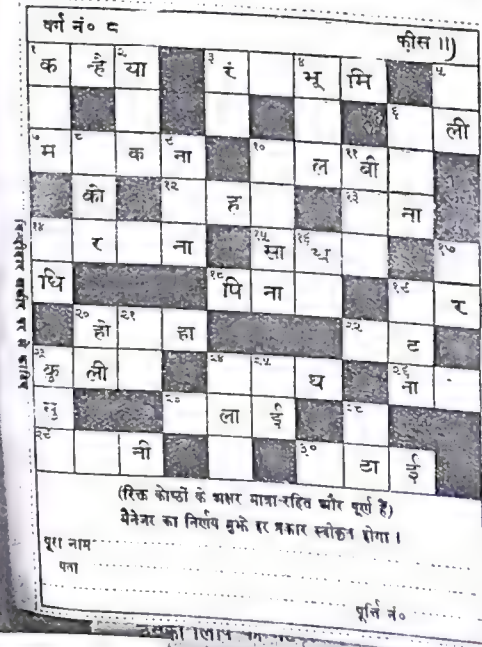 वर्ग नं० ८ फीस ॥)
१ क न्है २ या ३ रं ४ भू मि ५
६ ली
७ म ८ क ९ ना १० ल ११ बी
को १२ ह १३ ना
१४ र ना १५ सा १६ धु १७
धि १८ पि ना १९ र
२० हो २१ हा २२ ट
२३ कु ली २४ २५ घ २६ ना
नु २७ ला ई २८
२९ नी ३० टा ई
(रिक्त कोष्ठों के अक्षर मात्रा-रहित और पूर्ण हैं)
मैनेजर का निर्णय मुझे हर प्रकार स्वीकृत होगा।
पूरा नाम
पता
पूर्ति नं०